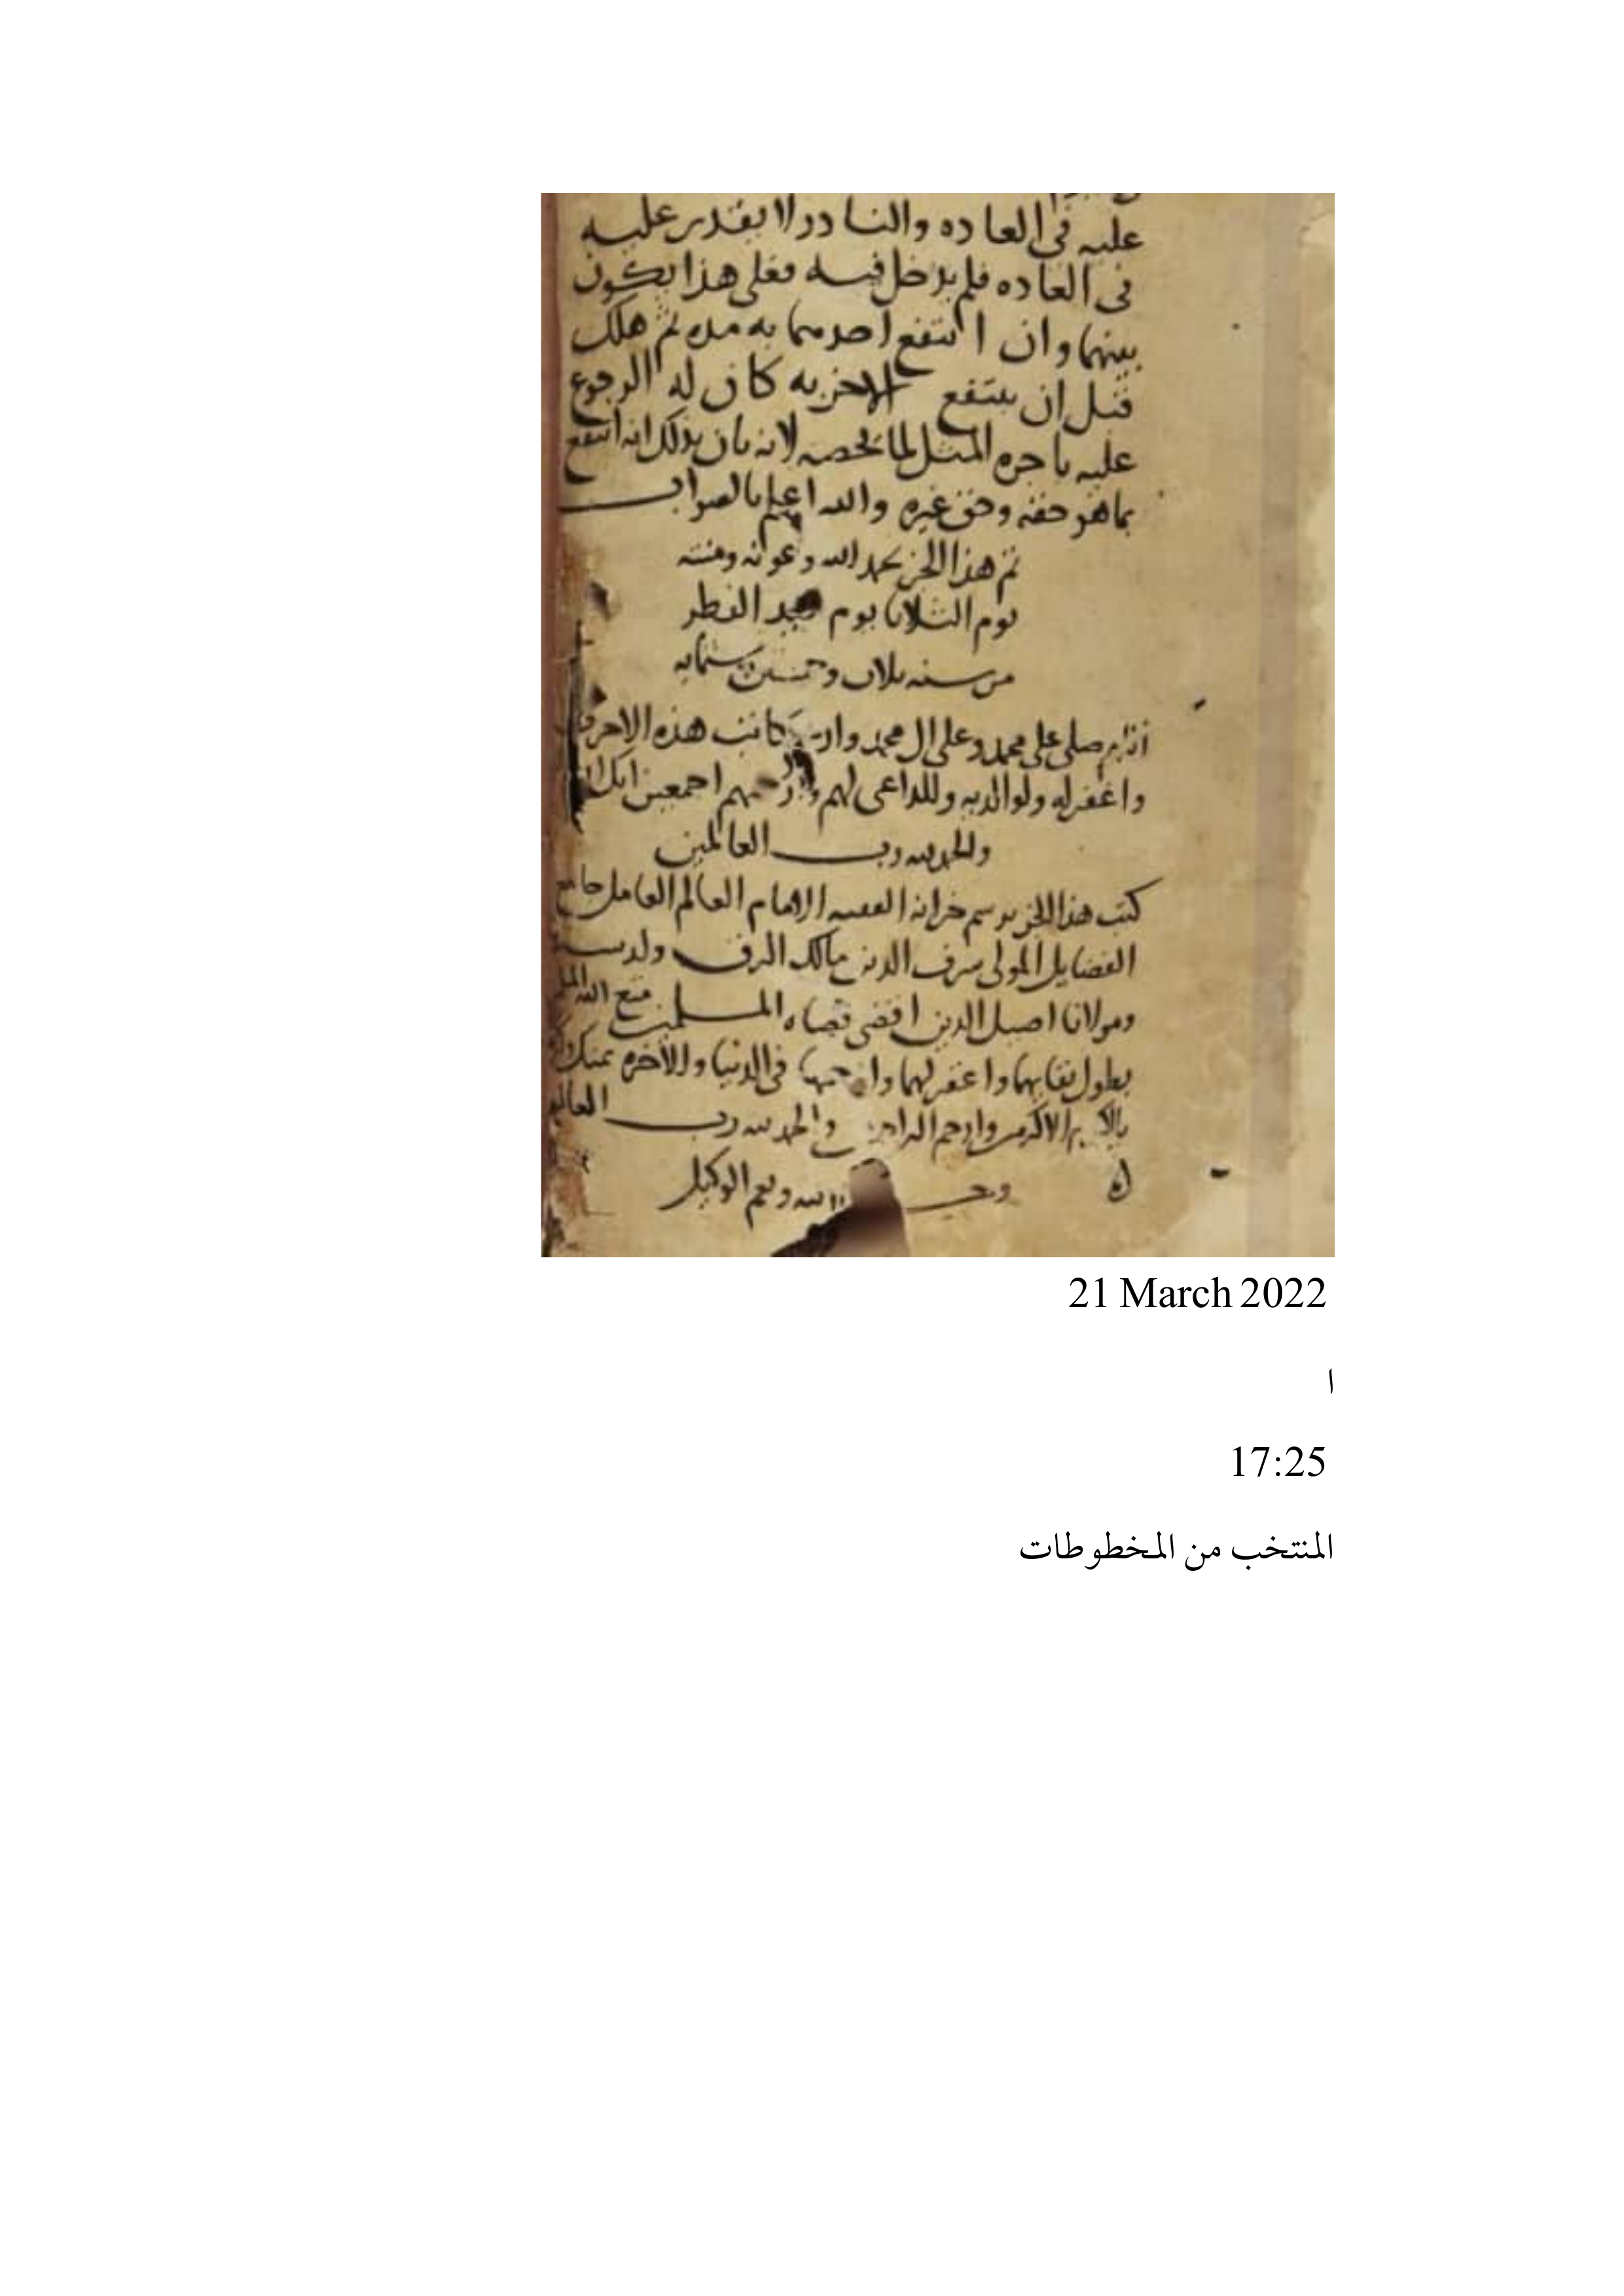 عليه في العاده والنادر لا يقدر عليه
في العاده فلم يدخل فيه فعلى هذا يكون
بينهما وان انتفع احدهما به مده ثم هلك
قبل ان ينتفع الاخر به كان له الرجوع
عليه باجره المثل لما يخصه لانه بان بذلك انه انتفع
بما هو حقه وحق غيره والله اعلم بالصواب
تم هذا الجز بحمد الله وعونه ومنته
يوم الثلاثا يوم عيد الفطر
من سنه ثلاث وخمسين وستمايه
اللهم صلي على محمد وعلى ال محمد كاتب هذه الاحرف
واغفر له ولوالديه وللداعى لهم وارحمهم اجمعين
والحمد لله رب العالمين
كتب هذا الجز برسم خزانه الفقيه الامام العالم العامل جامع
الفضايل المولى شرف الدين مالك الرق ولد
ومولانا اصيل الدين اقضى قضاه المسلمين متع الله
بطول بقايهما واغفر لهما وارحمهما في الدنيا والاخره
الاكرمين وارحم الراحمين والحمد لله رب
الله ونعم الوكيل
21 March 2022
ا
17:25
المنتخب من المخطوطات